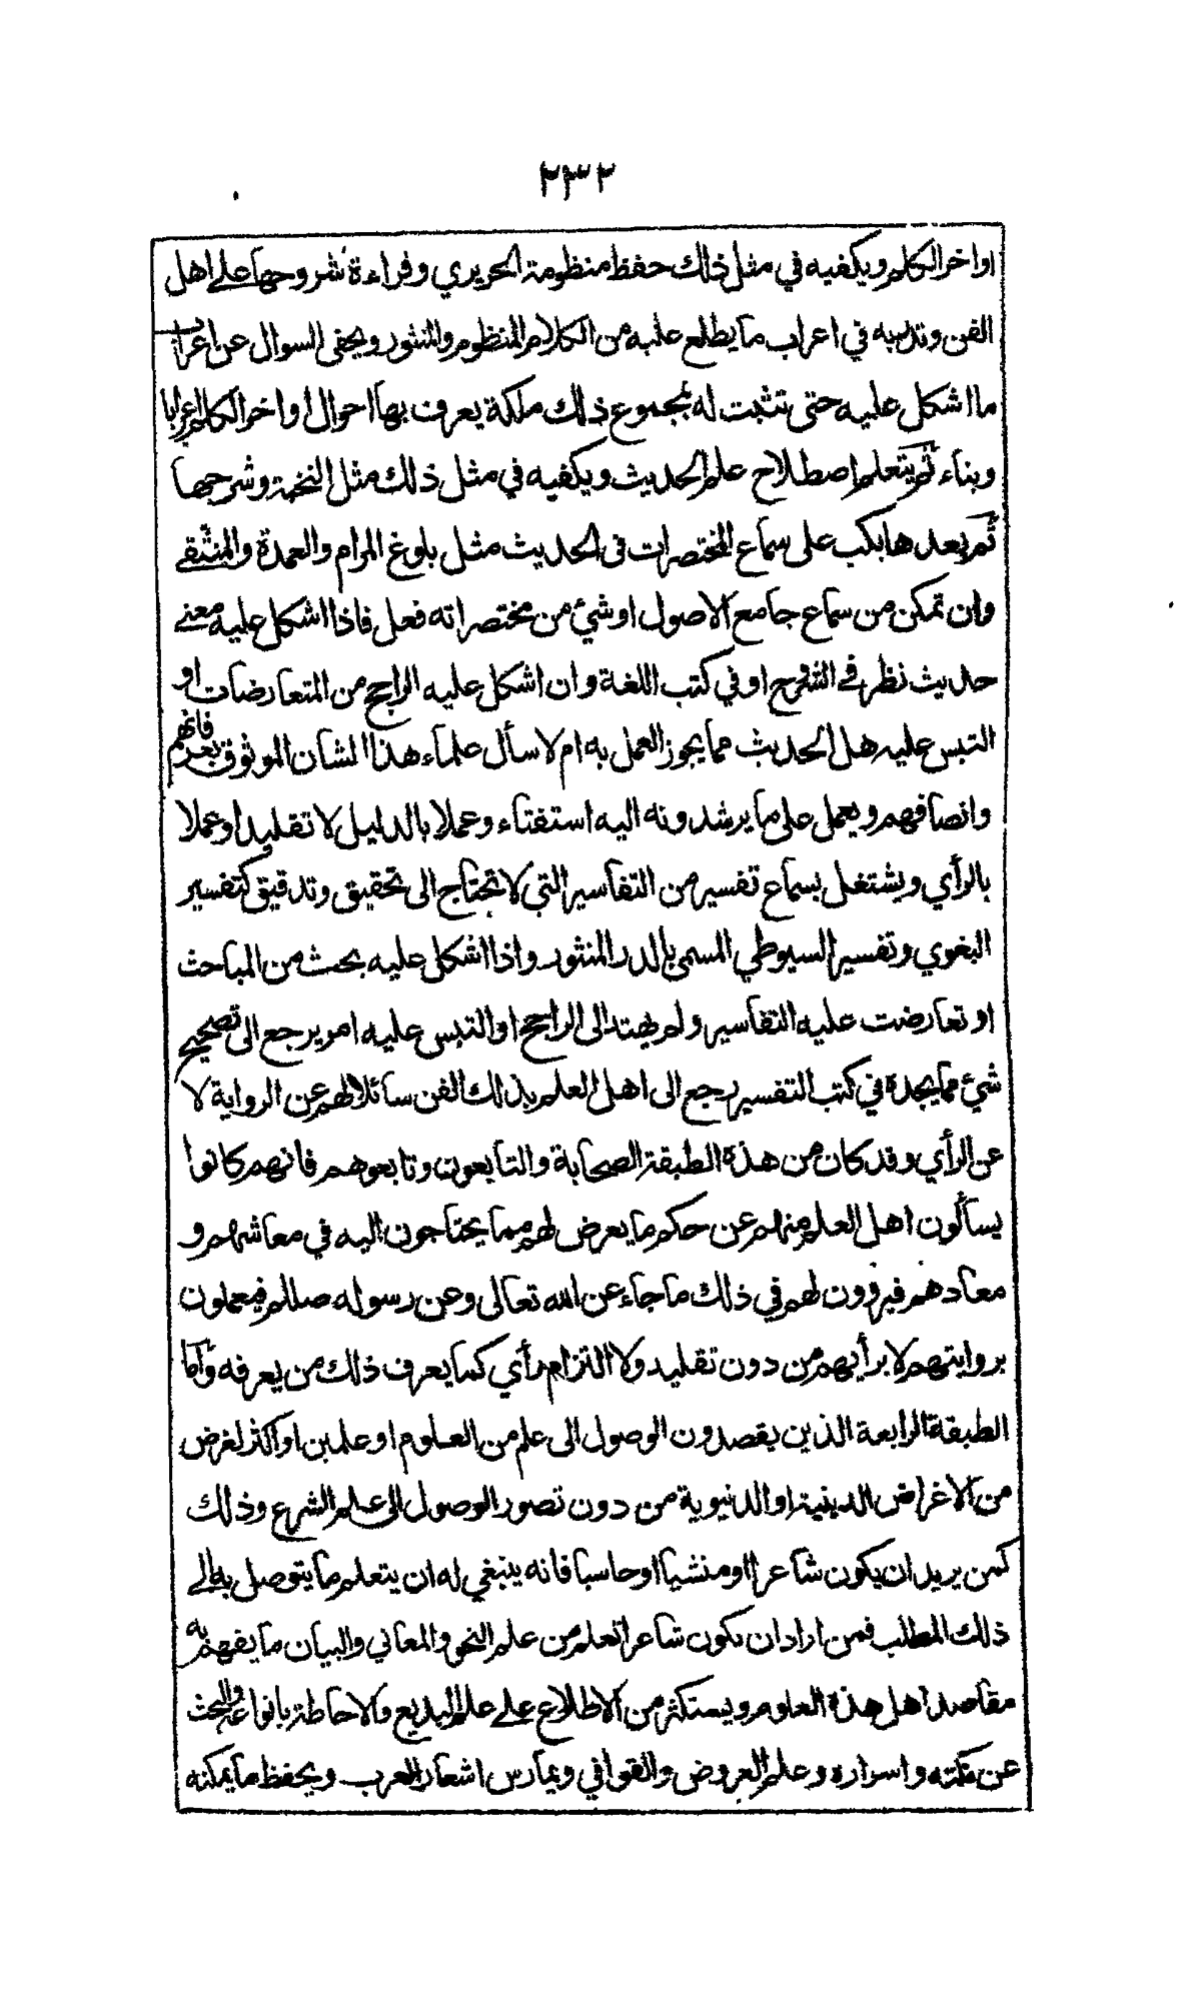 ٢٣٢
اواخر الكلم ويكفيه في مثل ذلك حفظ منظومة الحريري وقراءة شروحها على اهل
الفن وتدربه في اعراب ما يطلع عليه من الكلام المنظوم والمنثور ويحفى السوال عن اعراب
ما اشكل عليه حتى تثبت له بمجموع ذلك ملكة يعرف بها احوال اواخر الكلم اعرابا
وبناء ثم يتعلم اصطلاح علم الحديث ويكفيه في مثل ذلك مثل النخبة وشرحها
ثم بعدها يكب على سماع المختصرات في الحديث مثل بلوغ المرام والعمدة والمنتقى
وان تمكن من سماع جامع الاصول او شيء من مختصراته فعل فاذا اشكل عليه معنى
حديث نظر في الشروح او في كتب اللغة وان اشكل عليه الراجح من المتعارضات او
التبس عليه هل الحديث مما يجوز العمل به ام لا سأل علماء هذا الشان الموثوق بعرفانهم
وانصافهم ويعمل على ما يرشدونه اليه استفتاء وعملا بالدليل لا تقليدا وعملا
بالرأي ويشتغل بسماع تفسير من التفاسير التي لا تحتاج الى تحقيق وتدقيق كتفسير
البغوي وتفسير السيوطي المسمى بالدر المنثور واذا اشكل عليه بحث من المباحث
او تعارضت عليه التفاسير ولم يهتد الى الراجح او التبس عليه امر يرجع الى تصحيح
شيء مما يجده في كتب التفسير رجع الى اهل العلم بذلك الفن سائلا لهم عن الرواية لا
عن الرأي وقد كان من هذه الطبقة الصحابة والتابعون وتابعوهم فانهم كانوا
يسألون اهل العلم منهم عن حكم ما يعرض لهم مما يحتاجون اليه في معاشهم و
معادهم فيروون لهم في ذلك ما جاء عن الله تعالى وعن رسوله صللم فيعملون
بروايتهم لا برأيهم من دون تقليد ولا التزام رأي كما يعرف ذلك من يعرفه واما
الطبقة الرابعة الذين يقصدون الوصول الى علم من العلوم او علمين او اكثر لغرض
من الاغراض الدينية او الدنيوية من دون تصور الوصول الى علم الشرع وذلك
كمن يريد ان يكون شاعرا او منشيا او حاسبا فانه ينبغي له ان يتعلم ما يتوصل به الى
ذلك المطلب فمن اراد ان يكون شاعرا تعلم من علم النحو والمعاني والبيان ما يفهم به
مقاصد اهل هذه العلوم ويستكثر من الاطلاع على علم البديع والاحاطة بانواعه والبحث
عن نكته واسراره وعلم العروض والقوافي ويمارس اشعار العرب ويحفظ ما يمكنه